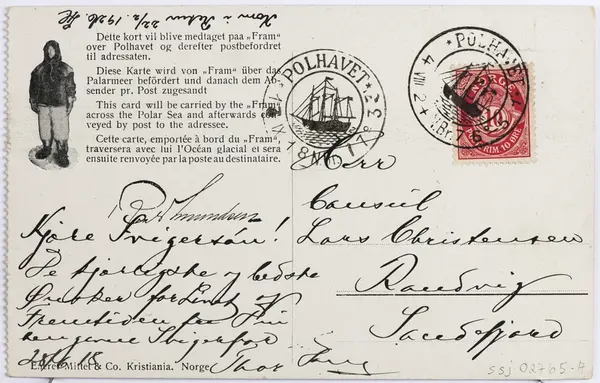 Kom i Retur 22/2. 1926.
Dette kort vil blive medtaget paa „Fram"
over Polhavet og derefter postbefordret
til adressaten.
Diese Karte wird von „Fram" über das
Palarmeer befördert und danach dem Ab-
sender pr. Post zugesandt
This card will be carried by the „Fram"
across the Polar Sea and afterwards con-
veyed by post to the adressee.
Cette carte, emportée à bord du „Fram",
traversera avec lui l'Océan glacial et sera
ensuite renvoyée par la poste au destinataire.
POLHAVET
POLHAVET
4 VIII 2
NORGE
10
PRIM. 10 ØRE
Herr
Consul
Lars Christensen
Randvig
Sandefjord
R Amundsen
Kjære
De hjærtigste og bedste
Ønsker for
Fremtiden fra
hengivne
28/6 18 Thor
Eneret Mittet & Co. Kristiania. Norge
ssj 02765-A